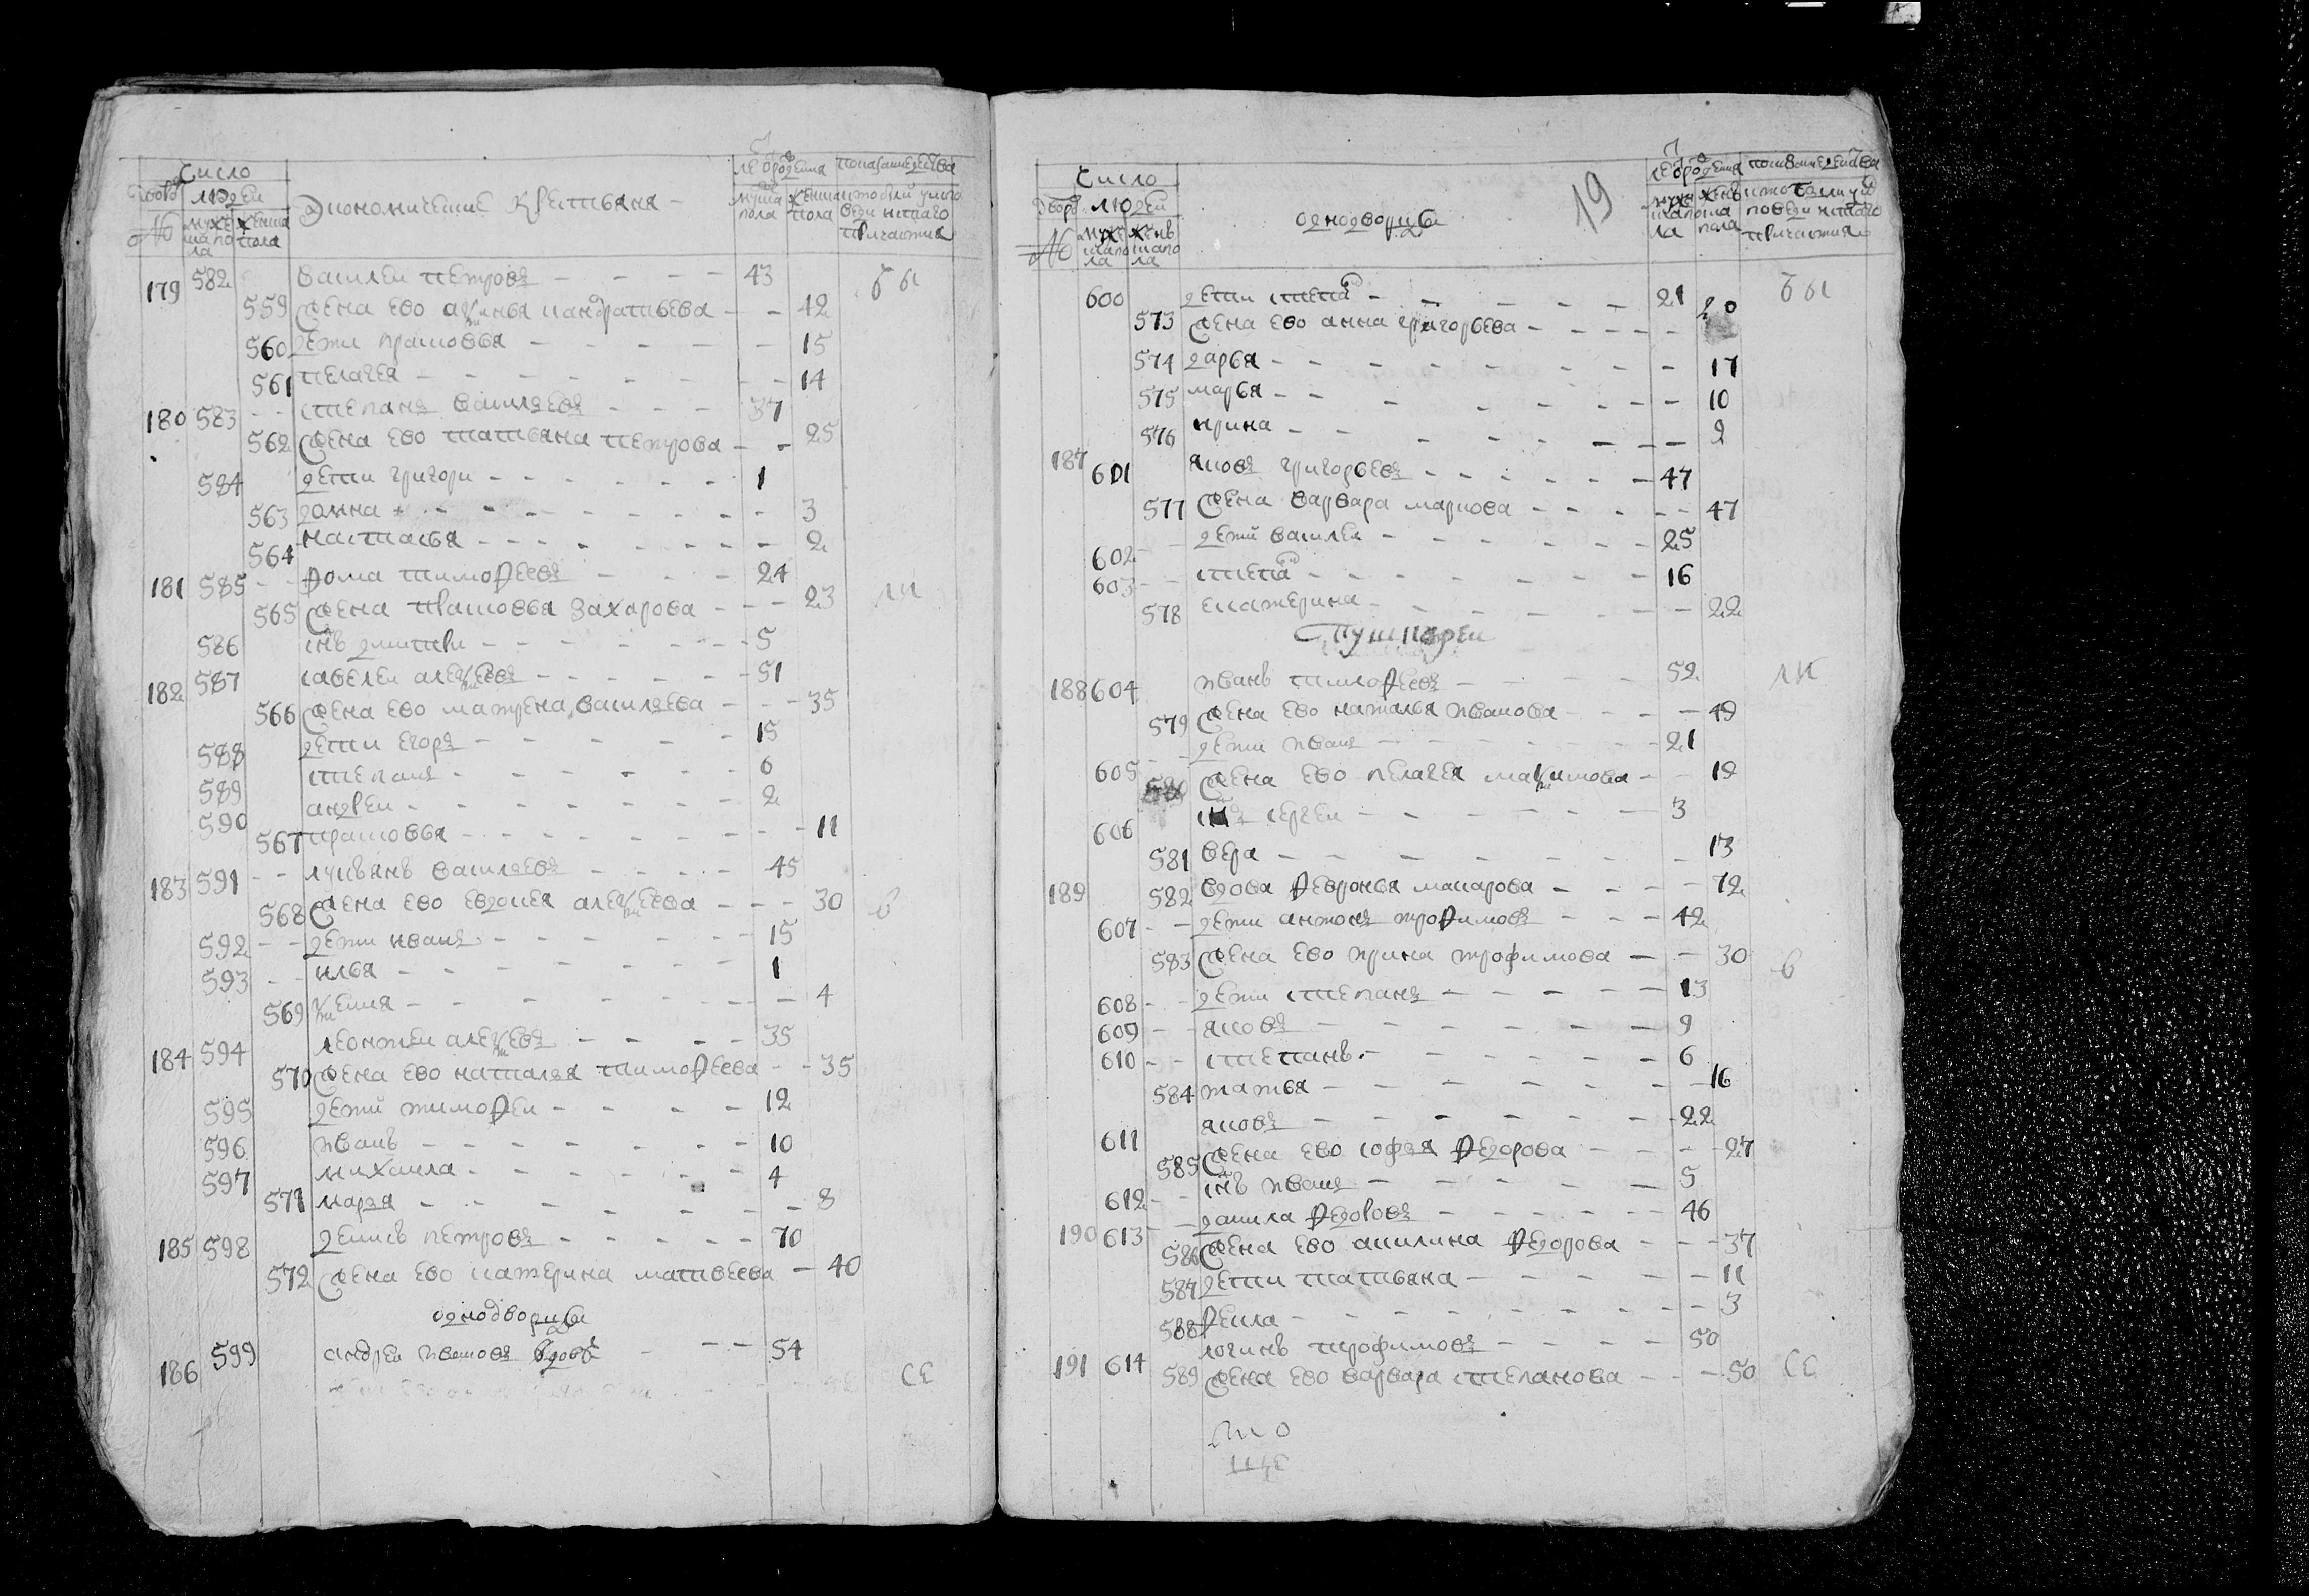 число
дворовъ людей
№ мужеска пола женска пола
Экономические крестьяня
лето рождения
мужеска пола женска пола
показание действа кто был у исповеди и святаго причастия
179 582 василеи петровъ 43 бы
559 жена ево аксинья кандратьева 42
560 дети прасковья 15
561 пелагея 14
180 583 степанъ василевъ 37
562 жена ево татьяна петрова 25
584 дети григори 1
563 домна 3
564 настасья 2
181 585 фома тимофеевъ 24
565 жена прасковья захарова 23
586 снъ дмитри 5
182 587 савелеи алексеевъ 51
566 жена ево матрена василева 35
588 дети егоръ 15
589 степанъ 6
590 андреи 2
567 прасковья 11
183 591 лукьянъ василевъ 45
568 жена ево евдокея алексеева 30
592 дети иванъ 15
593 илья 1
569 ксения 4
184 594 леонтеи алексеевъ 35
570 жена ево наталья тимофеева 35
595 дети тимофеи 12
596 иванъ 10
597 михаила 4
571 марья 8
185 598 денисъ петровъ 70
572 жена ево катерина матвеева 40
однодворцы
186 599 андреи ивановъ вдовъ 54 се
19
число
дворовъ людеи
№ мужеска пола женска пола
однодворцы
лето рождения
мужеска пола женска пола
600 дети степанъ 21 бы
573 жена ево анна григорьева 20
574 дарья 17
575 марья 10
576 ирина 2
187 601 яковъ григорьевъ 47
577 жена варвара маркова 47
602 дети василеи 25
603 степанъ 16
578 екатерина 22
Пушкари
188 604 иванъ тимофеевъ 52
579 жена ево наталья иванова 49
605 дети иванъ 21
580 жена ево пелагея максимова 19
606 снъ сергеи 3
581 вера 13
189 582 вдова февронья макарова 72
607 дети антонъ трофимовъ 42
583 жена ево ирина трофимова 30
608 дети степанъ 13
609 яковъ 9
610 степанъ 6
584 татья 16
611 яковъ 22
585 жена ево софья федорова 27
612 снъ иванъ 5
190 613 данила федоровъ 46
586 жена ево акилина федорова 37
587 дети татьяна 11
588 фекла 3
191 614 логинъ трофимовъ 50
589 жена ево варвара степанова 50 се